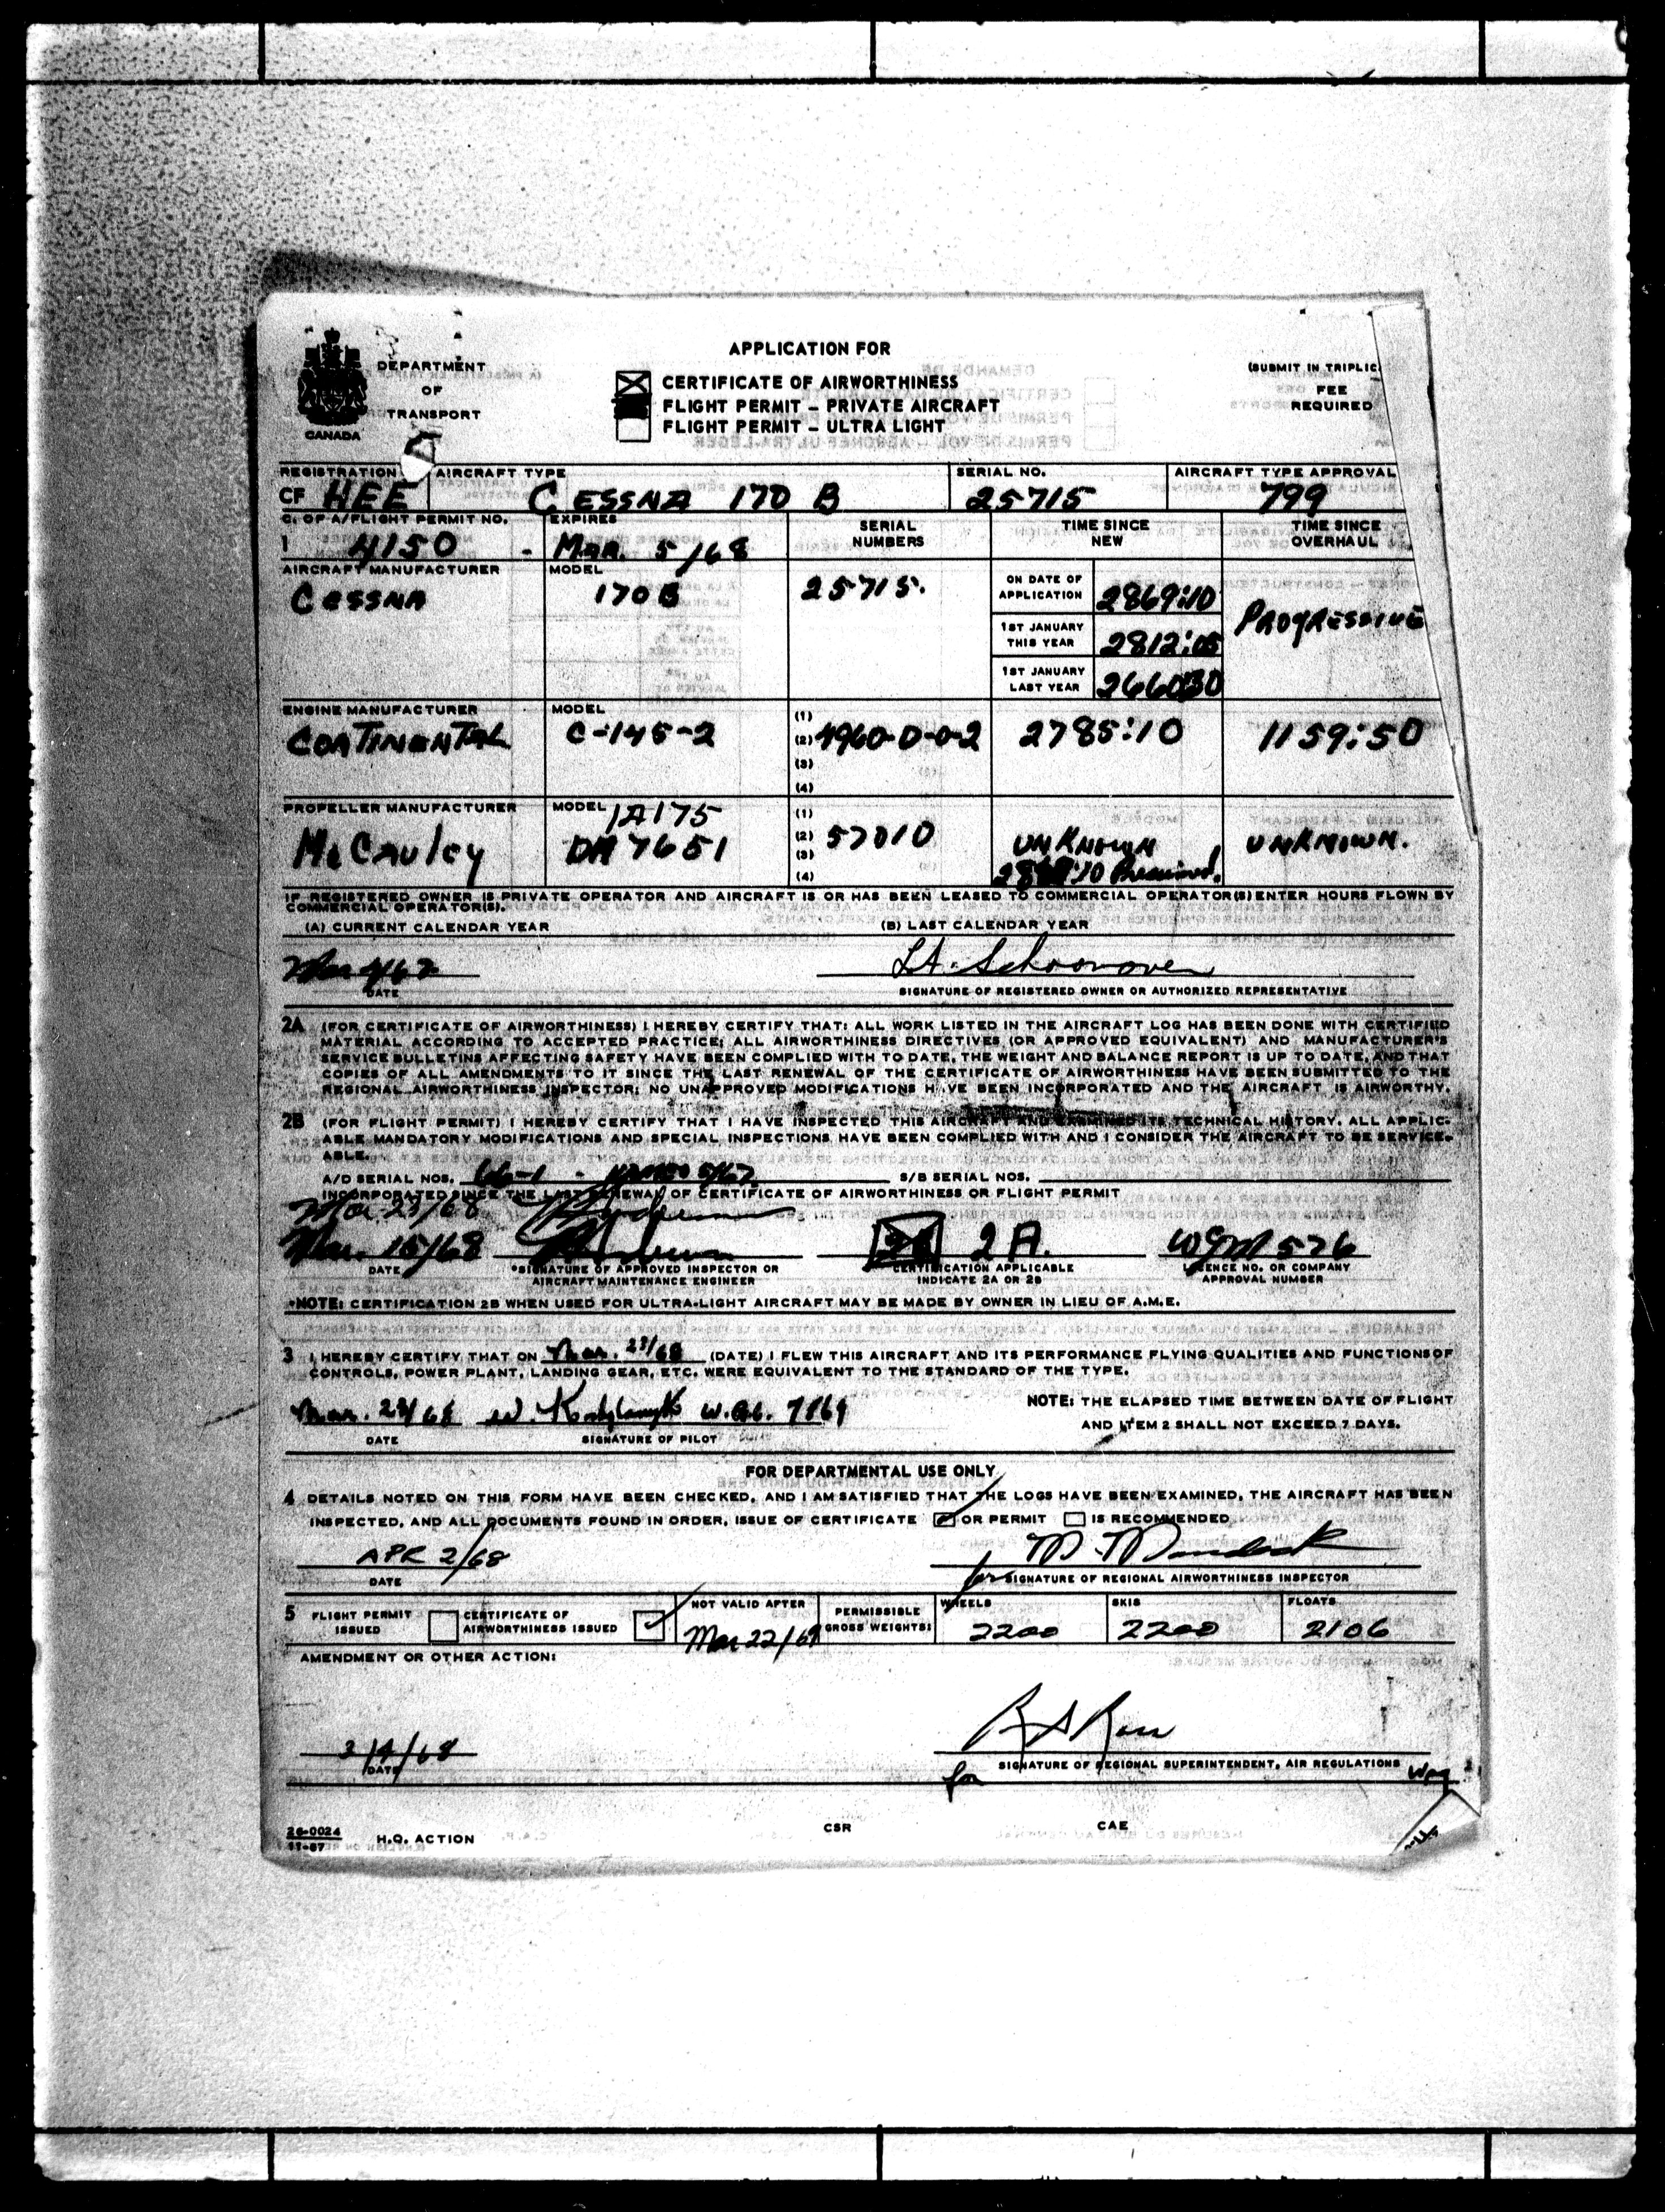 DEPARTMENT
OF
TRANSPORT
CANADA
APPLICATION FOR
CERTIFICATE OF AIRWORTHINESS
FLIGHT PERMIT – PRIVATE AIRCRAFT
FLIGHT PERMIT – ULTRA LIGHT
(SUBMIT IN TRIPLIC
FEE
REQUIRED
REGISTRATION AIRCRAFT TYPE SERIAL NO. AIRCRAFT TYPE APPROVAL
CF HEE CESSNA 170 B 25715 799
C. OF A/FLIGHT PERMIT NO. EXPIRES SERIAL NUMBERS TIME SINCE NEW TIME SINCE OVERHAUL
1 4150 - Mar. 5/68
AIRCRAFT MANUFACTURER MODEL
CESSNA 170B 25715.
ON DATE OF APPLICATION 2869:10
1ST JANUARY THIS YEAR 2812:05
1ST JANUARY LAST YEAR
PROGRESSIVE
ENGINE MANUFACTURER MODEL (1)
CONTINENTAL C-145-2 (2) 4960-D-0-2 2785:10 1159:50
(3)
(4)
PROPELLER MANUFACTURER MODEL 1A175 (1)
McCauley DM 7651 (2) 57010 UNKNOWN UNKNOWN.
(3)
(4)
IF REGISTERED OWNER IS PRIVATE OPERATOR AND AIRCRAFT IS OR HAS BEEN LEASED TO COMMERCIAL OPERATOR(S) ENTER HOURS FLOWN BY
COMMERCIAL OPERATOR(S).
(A) CURRENT CALENDAR YEAR (B) LAST CALENDAR YEAR
Schoonover
DATE SIGNATURE OF REGISTERED OWNER OR AUTHORIZED REPRESENTATIVE
2A (FOR CERTIFICATE OF AIRWORTHINESS) I HEREBY CERTIFY THAT: ALL WORK LISTED IN THE AIRCRAFT LOG HAS BEEN DONE WITH CERTIFIED
MATERIAL ACCORDING TO ACCEPTED PRACTICE; ALL AIRWORTHINESS DIRECTIVES (OR APPROVED EQUIVALENT) AND MANUFACTURER'S
SERVICE BULLETINS AFFECTING SAFETY HAVE BEEN COMPLIED WITH TO DATE, THE WEIGHT AND BALANCE REPORT IS UP TO DATE, AND THAT
COPIES OF ALL AMENDMENTS TO IT SINCE THE LAST RENEWAL OF THE CERTIFICATE OF AIRWORTHINESS HAVE BEEN SUBMITTED TO THE
REGIONAL AIRWORTHINESS INSPECTOR; NO UNAPPROVED MODIFICATIONS HAVE BEEN INCORPORATED AND THE AIRCRAFT IS AIRWORTHY.
2B (FOR FLIGHT PERMIT) I HEREBY CERTIFY THAT I HAVE INSPECTED THIS AIRCRAFT AND EXAMINED ITS TECHNICAL HISTORY. ALL APPLIC-
ABLE MANDATORY MODIFICATIONS AND SPECIAL INSPECTIONS HAVE BEEN COMPLIED WITH AND I CONSIDER THE AIRCRAFT TO BE SERVICE-
ABLE.
A/D SERIAL NOS. 66-1 - S/B SERIAL NOS.
INCORPORATED SINCE THE LAST RENEWAL OF CERTIFICATE OF AIRWORTHINESS OR FLIGHT PERMIT
Mar 23/68
Mar. 15/68 2A. WGM 576
DATE *SIGNATURE OF APPROVED INSPECTOR OR AIRCRAFT MAINTENANCE ENGINEER CERTIFICATION APPLICABLE INDICATE 2A OR 2B LICENCE NO. OR COMPANY APPROVAL NUMBER
*NOTE: CERTIFICATION 2B WHEN USED FOR ULTRA-LIGHT AIRCRAFT MAY BE MADE BY OWNER IN LIEU OF A.M.E.
3 I HEREBY CERTIFY THAT ON Mar. 23/68 (DATE) I FLEW THIS AIRCRAFT AND ITS PERFORMANCE FLYING QUALITIES AND FUNCTIONS OF
CONTROLS, POWER PLANT, LANDING GEAR, ETC. WERE EQUIVALENT TO THE STANDARD OF THE TYPE.
Mar. 23/68 NOTE: THE ELAPSED TIME BETWEEN DATE OF FLIGHT
AND ITEM 2 SHALL NOT EXCEED 7 DAYS.
DATE SIGNATURE OF PILOT
FOR DEPARTMENTAL USE ONLY
4 DETAILS NOTED ON THIS FORM HAVE BEEN CHECKED, AND I AM SATISFIED THAT THE LOGS HAVE BEEN EXAMINED, THE AIRCRAFT HAS BEEN
INSPECTED, AND ALL DOCUMENTS FOUND IN ORDER, ISSUE OF CERTIFICATE OR PERMIT IS RECOMMENDED
APR 2/68
DATE for SIGNATURE OF REGIONAL AIRWORTHINESS INSPECTOR
5 FLIGHT PERMIT ISSUED CERTIFICATE OF AIRWORTHINESS ISSUED NOT VALID AFTER Mar 22/69 PERMISSIBLE GROSS WEIGHTS: WHEELS 2200 SKIS 2200 FLOATS 2106
AMENDMENT OR OTHER ACTION:
3/4/68 R S Ross
DATE for SIGNATURE OF REGIONAL SUPERINTENDENT, AIR REGULATIONS Wpg
26-0024
11-67 H.Q. ACTION CSR CAE